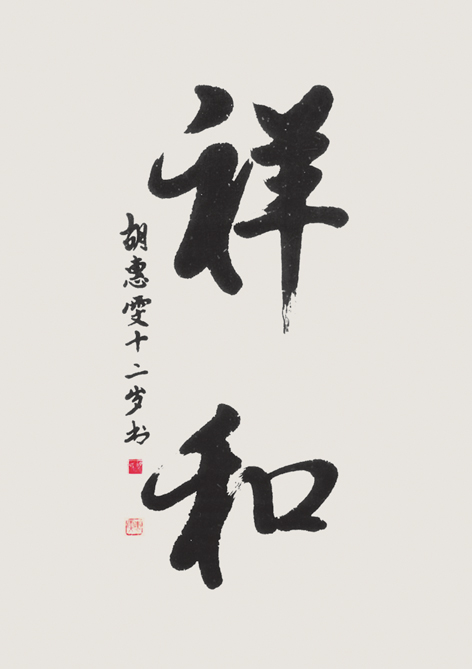 祥和
胡惠雯十二岁书